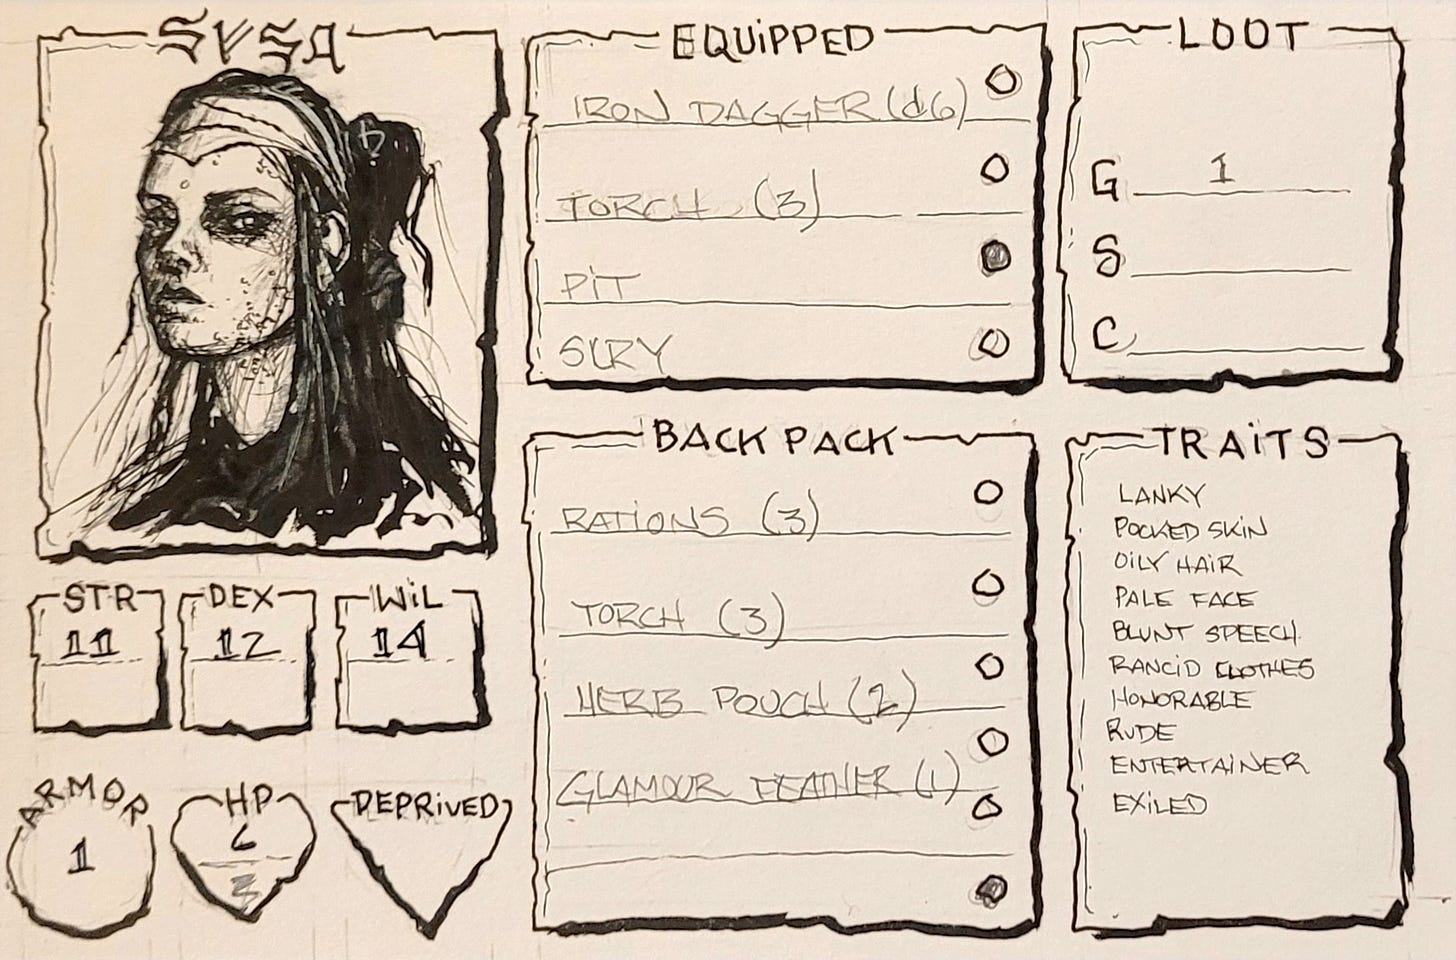 SVSA
STR
11
DEX
12
WiL
14
ARMOR
1
HP
6
3
DEPRiVED
EQUiPPED
IRON DAGGER (d6)
TORCH (3)
PiT
SLRY
BACK PACK
RATiONS (3)
TORCH (3)
HERB POUCH (2)
GLAMOUR FEATHER (1)
LOOT
G 1
S
C
TRAiTS
LANKY
POCKED SKiN
OiLY HAiR
PALE FACE
BLUNT SPEECH
RANCiD CLOTHES
HONORABLE
RUDE
ENTERTAiNER
EXiLED